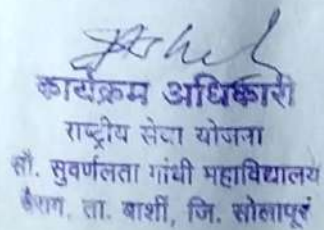 कार्यक्रम अधिकारी
राष्ट्रीय सेवा योजना
सौ. सुवर्णलता गांधी महाविद्यालय
वैराग, ता. बार्शी, जि. सोलापूर